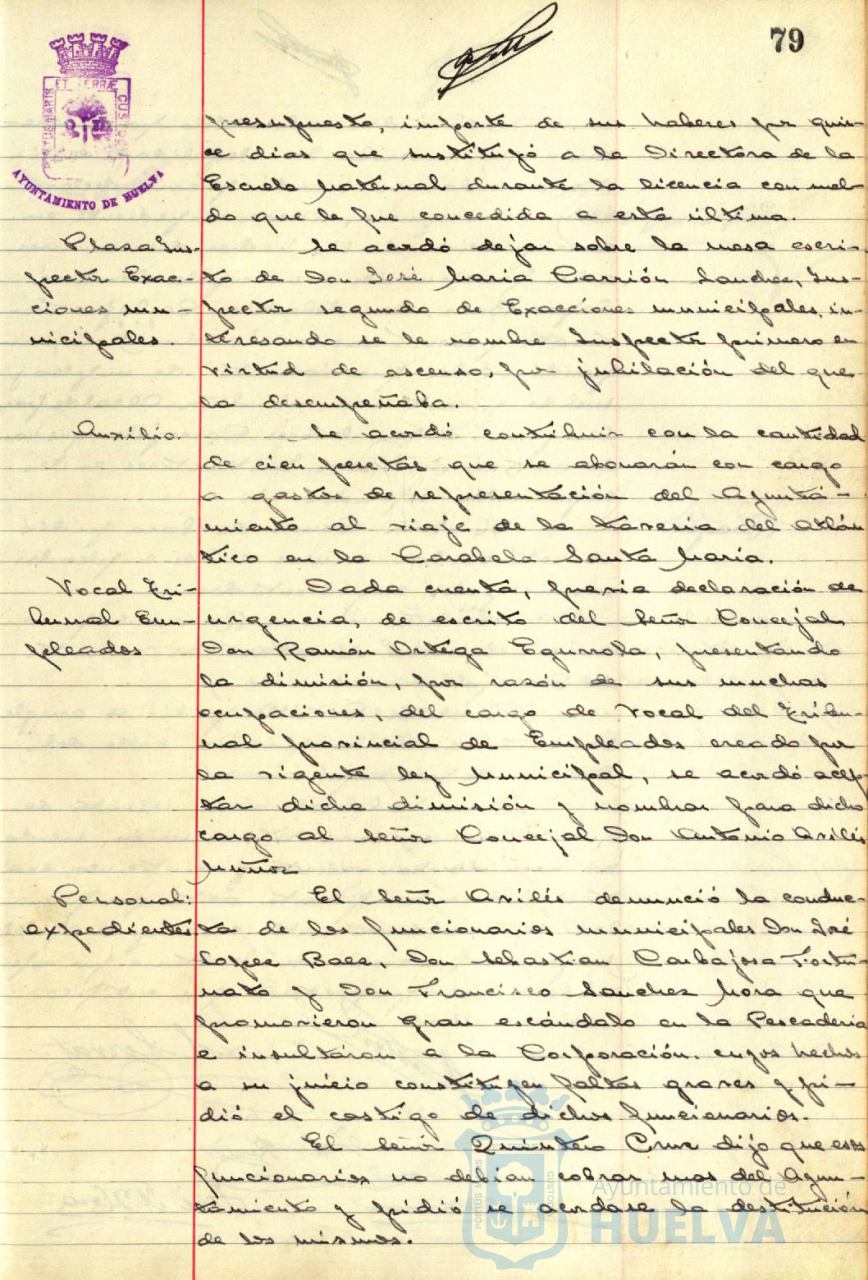 79
PORTUS MARIS ET TERRÆ CUSTODIA
AYUNTAMIENTO DE HUELVA
presupuesto, importe de sus haberes por quin-
ce dias que sustituyó a la Directora de la
Escuela Maternal durante la licencia con suel-
do que le fue concedida a esta última.
Plaza Ins-
pector Exac-
ciones mu-
nicipales.
Se acordó dejar sobre la mesa escri-
to de Don José Maria Carrión Sanchez, Ins-
pector segundo de Exacciones municipales, in-
teresando se le nombre Inspector primero en
virtud de ascenso, por jubilación del que
la desempeñaba.
Auxilio.
Se acordó contribuir con la cantidad
de cien pesetas que se abonarán con cargo
a gastos de representación del Ayunta-
miento al viaje de la travesia del Atlán
tico en la Carabela Santa María.
Vocal Tri-
bunal Em-
pleados
Dada cuenta, previa declaración de
urgencia, de escrito del Señor Concejal
Don Ramón Ortega Egurrola, presentando
la dimisión, por razón de sus muchas
ocupaciones, del cargo de Vocal del Tribu-
nal provincial de Empleados creado por
la vigente ley Municipal, se acordó acep-
tar dicha dimisión y nombrar para dicho
cargo al Señor Concejal Don Antonio Avilés
Muñoz
Personal:
expedientes
El Señor Avilés denunció la conduc-
ta de los funcionarios municipales Don José
Lopez Baez, Don Sebastian Carbajosa Fortu-
nato y Don Francisco Sanchez Mora que
promovieron gran escándalo en la Pescaderia
e insultáron a la Corporación. cuyos hechos
a su juicio constituyen faltas graves y pi-
dió el castigo de dichos funcionarios.
El Señor Quintero Cruz dijo que esos
funcionarios no debian cobrar mas del Ayun-
tamiento y pidió se acordase la destitución
de los mismos.
Ayuntamiento de
HUELVA